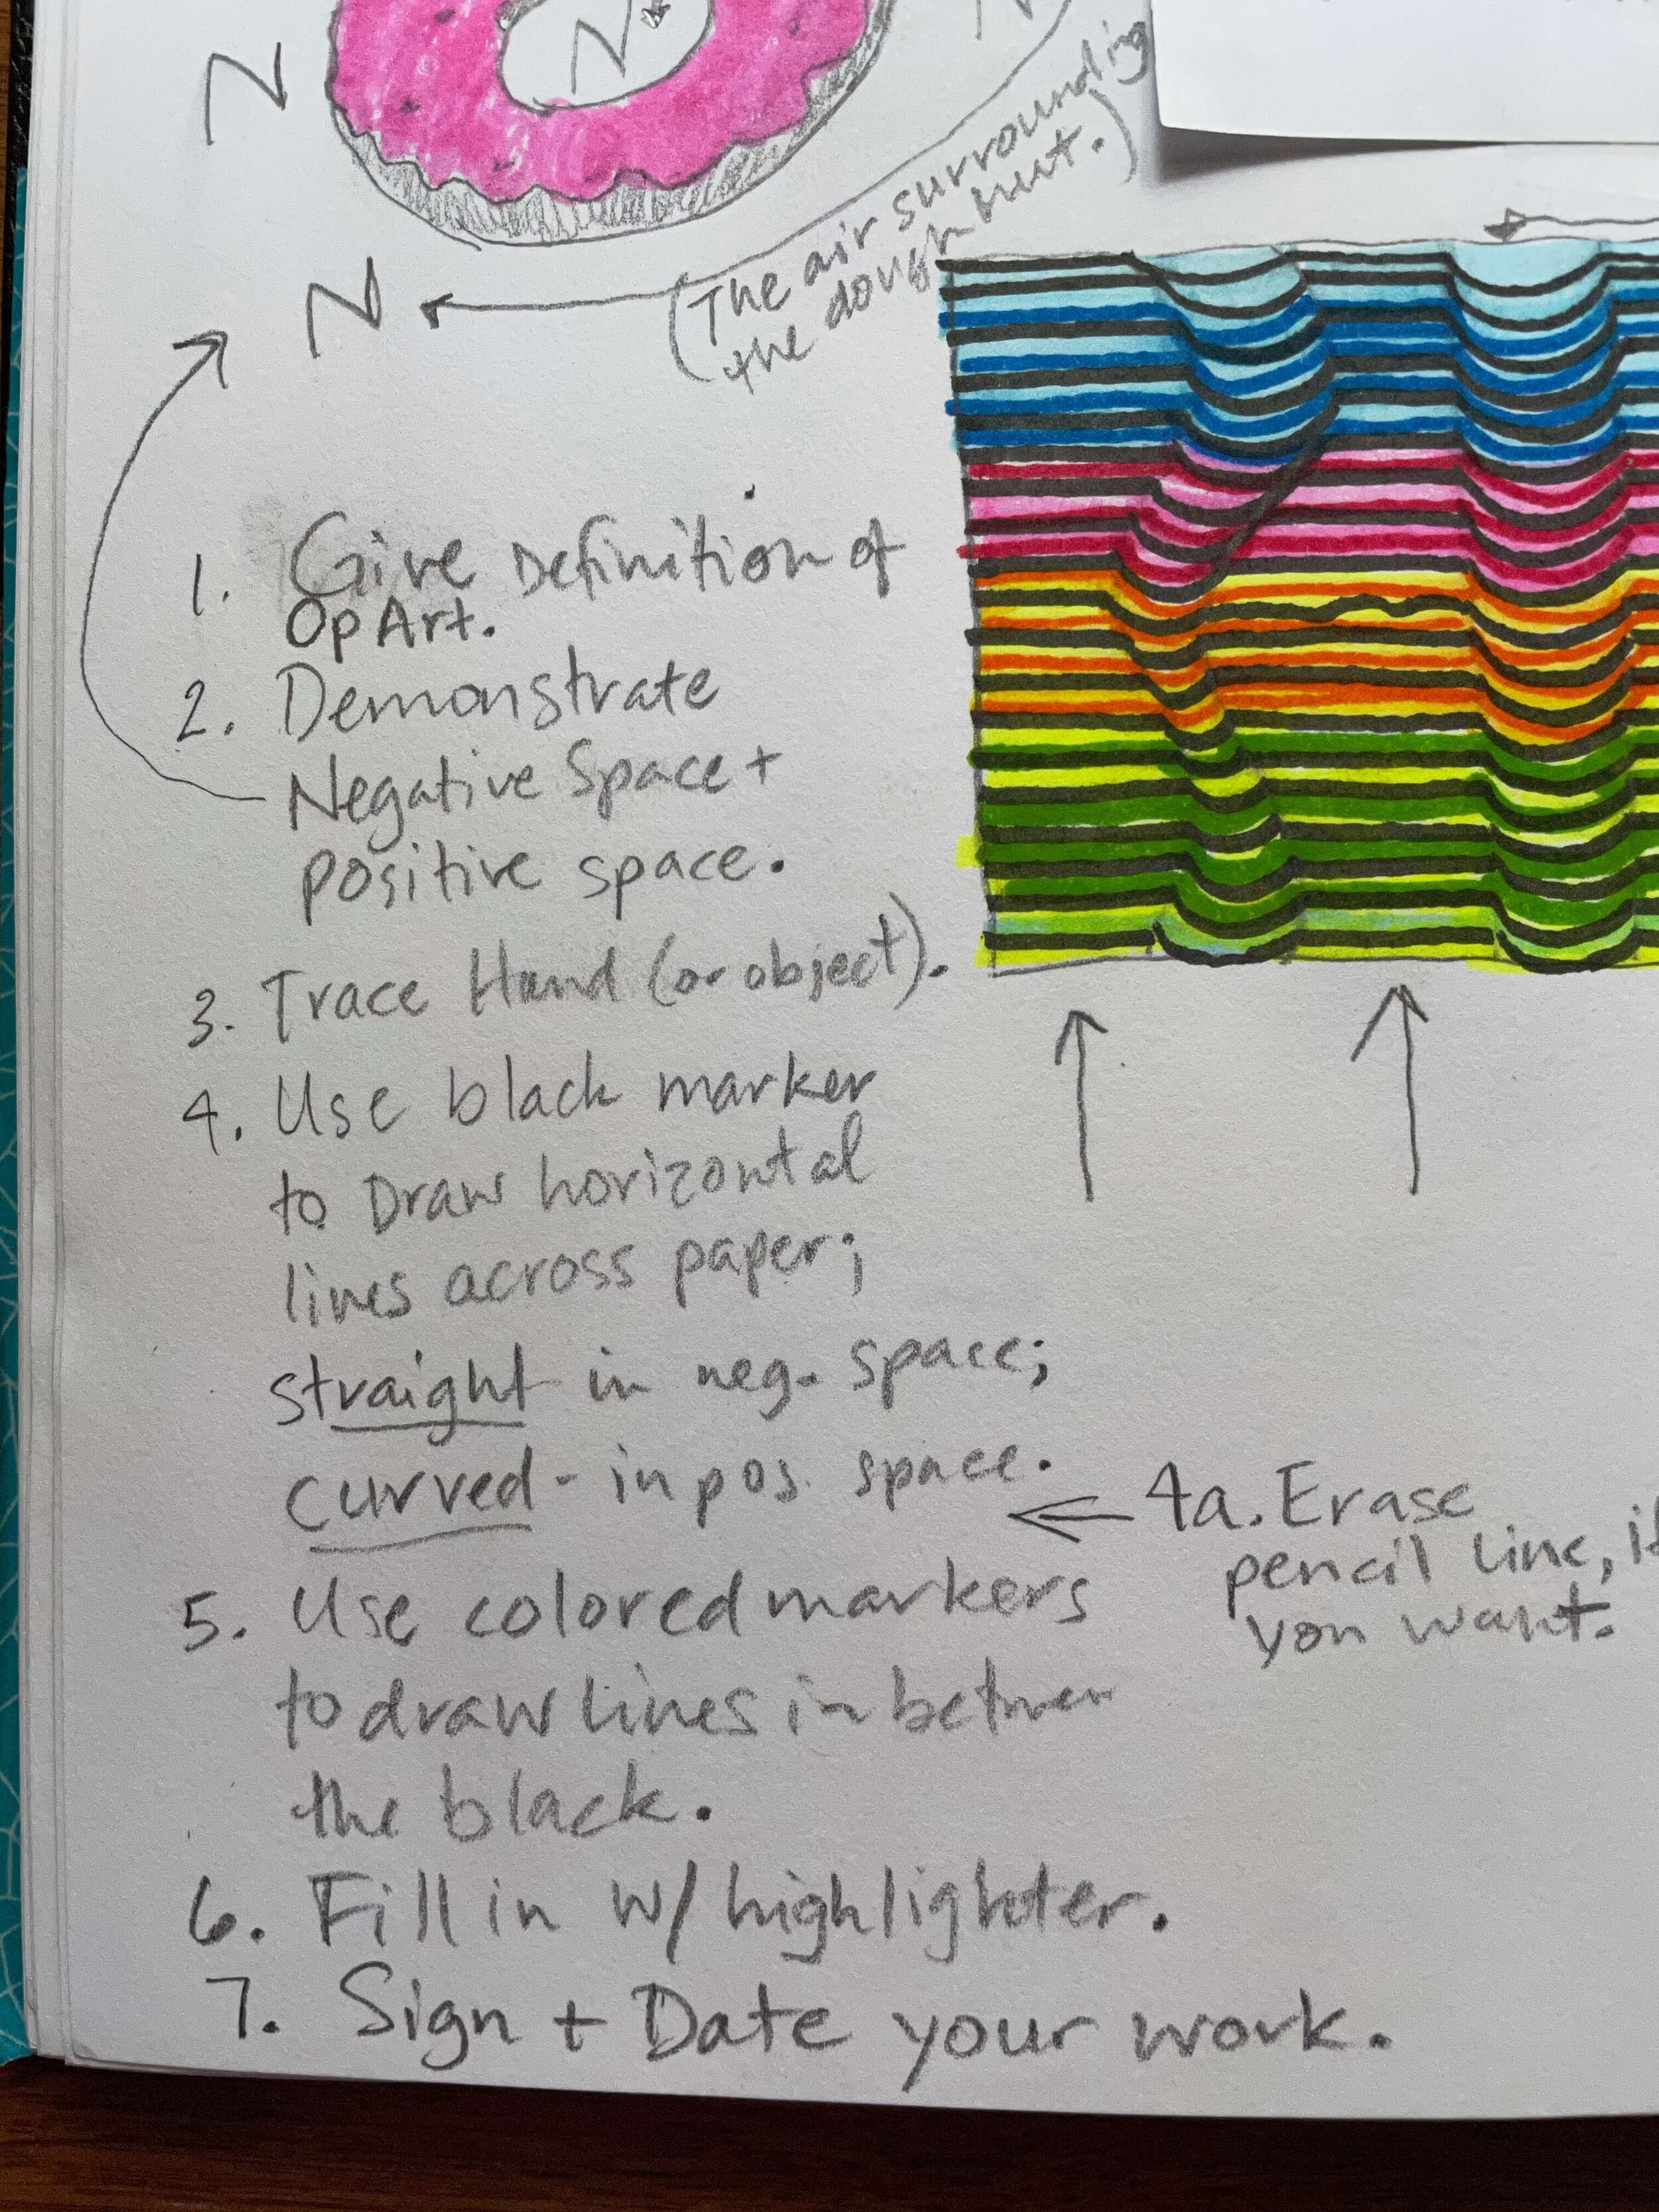 N
N
N
N
(The air surrounding
the doughnut.)
1. Give Definition of
Op Art.
2. Demonstrate
Negative Space +
positive space.
3. Trace Hand (or object).
4. Use black marker
to Draw horizontal
lines across paper;
straight in neg. space;
curved - in pos. space.
4a. Erase
pencil line, if
you want.
5. Use colored markers
to draw lines in between
the black.
6. Fill in w/ highlighter.
7. Sign + Date your work.